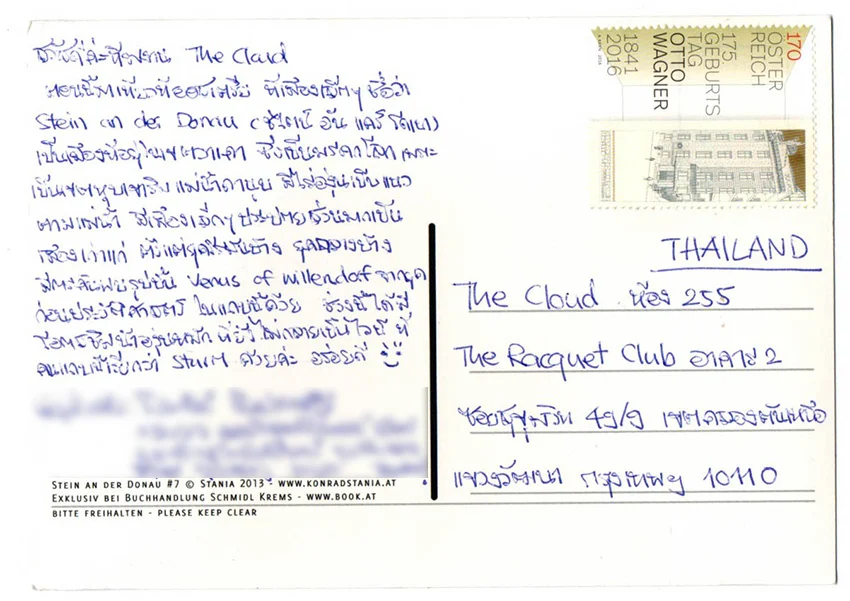 สวัสดีค่ะทีมงาน The Cloud
ตอนนี้มาเที่ยวที่ออสเตรีย ที่เมืองเล็กๆ ชื่อว่า
Stein an der Donau (ชไตน์ อัน แดร์ โดเนา)
เป็นเมืองที่อยู่ในเขตวาเคา ซึ่งเป็นมรดกโลก เพราะ
เป็นเขตหุบเขาริมแม่น้ำดานูบ มีไร่องุ่นเป็นแนว
ตามแม่น้ำ มีเมืองเล็กๆ ประปราย ส่วนมากเป็น
เมืองเก่าแก่ ตั้งแต่ยุคโรมันบ้าง ยุคกลางบ้าง
มีการค้นพบรูปปั้น Venus of Willendorf จากยุค
ก่อนประวัติศาสตร์ ในแถบนี้ด้วย ช่วงนี้ได้มี
โอกาสชิมน้ำองุ่นหมัก ที่ยังไม่กลายเป็นไวน์ ที่
คนแถบนี้เรียกว่า Sturm ด้วยค่ะ อร่อยดี
STEIN AN DER DONAU #7 © STANIA 2013 - WWW.KONRADSTANIA.AT
EXKLUSIV BEI BUCHHANDLUNG SCHMIDL KREMS - WWW.BOOK.AT
BITTE FREIHALTEN - PLEASE KEEP CLEAR
170
ÖSTER
REICH
175.
GEBURTS
TAG
OTTO
WAGNER
1841
2016
THAILAND
The Cloud ห้อง 255
The Racquet Club อาคาร 2
ซอยสุขุมวิท 49/9 เขตคลองตันเหนือ
แขวงวัฒนา กรุงเทพฯ 10110